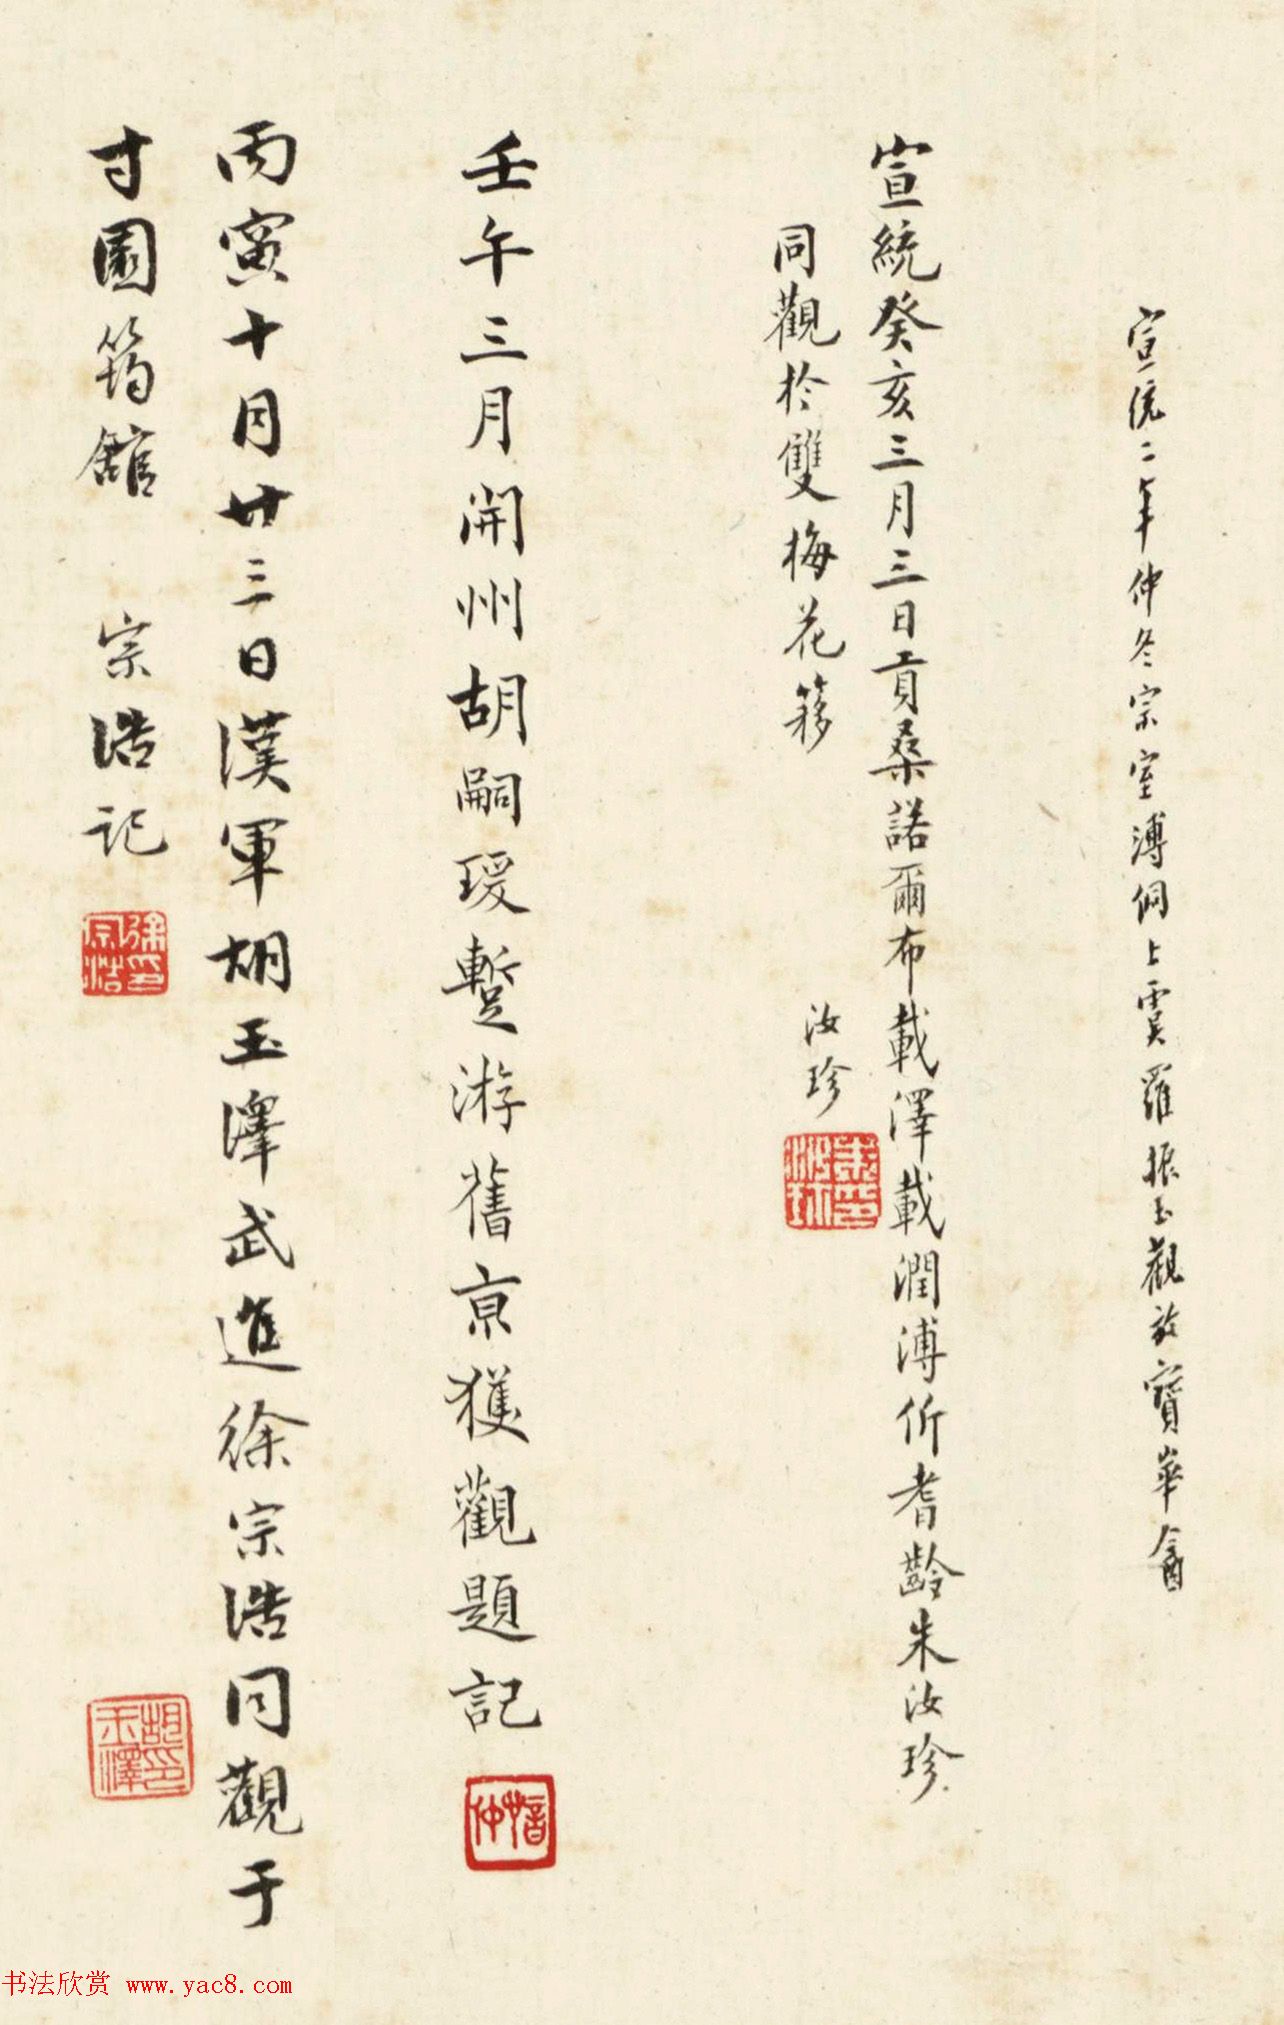 宣統二年仲冬宗室溥侗上虞羅振玉觀於寶華盦
宣統癸亥三月三日貢桑諾爾布載澤載潤溥伒耆齡朱汝珍
同觀於雙梅花簃
汝珍
朱印汝珍
壬午三月開州胡嗣瑗暫游舊京獲觀題記
愔仲
丙寅十月廿三日漢軍胡玉澤武進徐宗浩同觀于
寸園筠館 宗浩記
徐印宗浩
胡印玉澤
书法欣赏 www.yac8.com